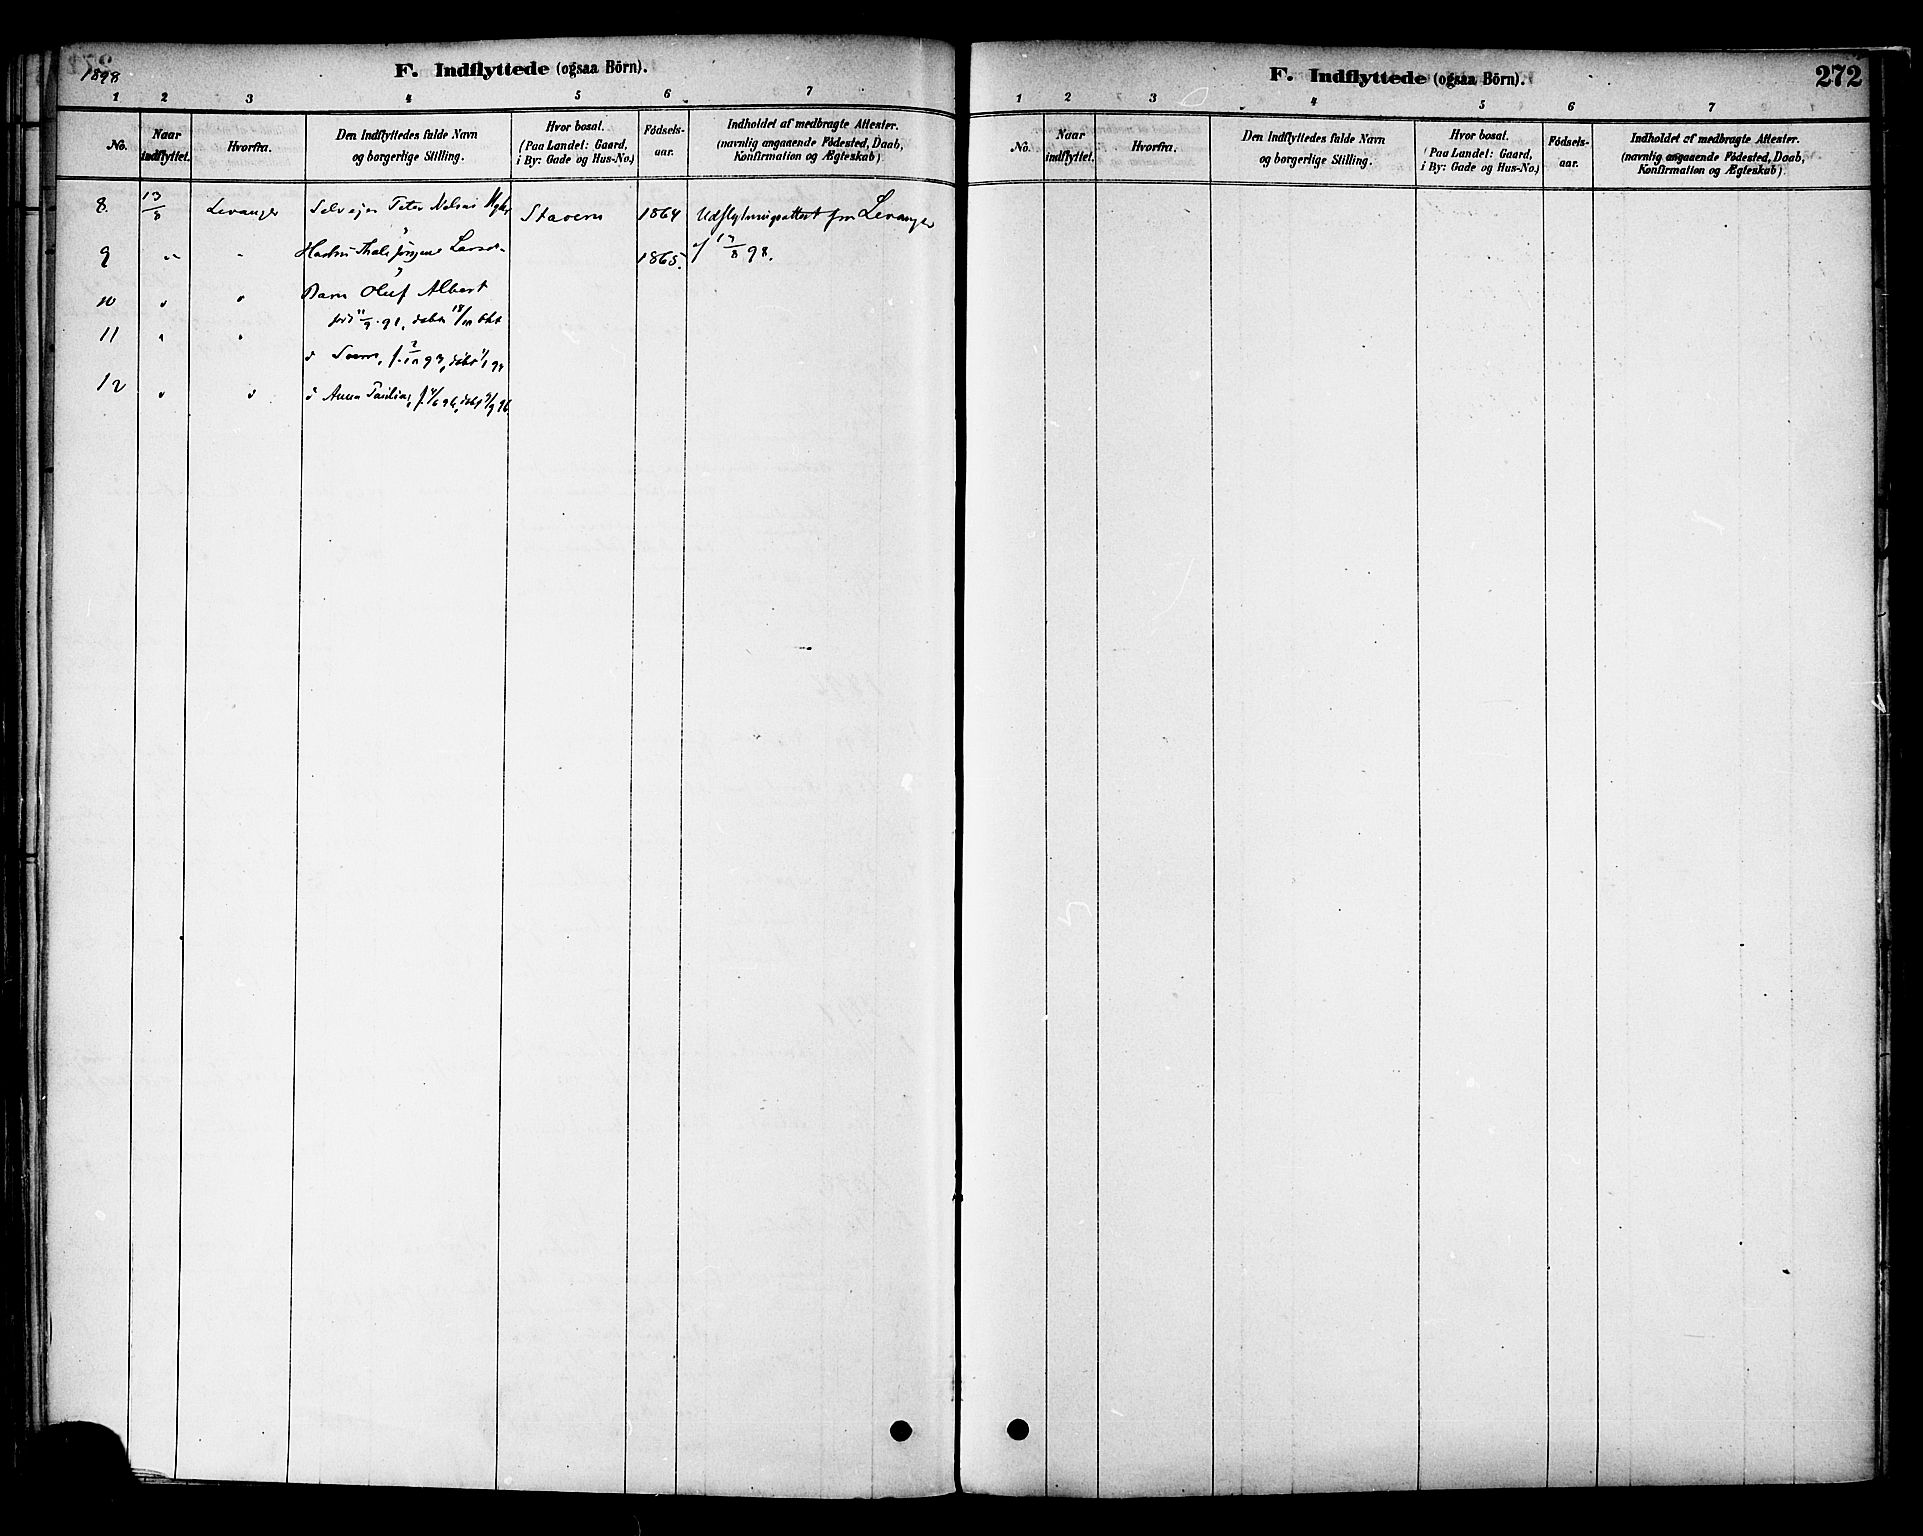 1898
F. Indflyttede (ogsaa Börn).
1 2 3 4 5 6 7
No. Naar indflyttet. Hvorfra. Den Indflyttedes fulde Navn og borgerlige Stilling. Hvor bosat. (Paa Landet: Gaard, i By: Gade og Hus-No.) Födsels-aar. Indholdet af medbragte Attester. (navnlig angaaende Födested, Daab, Konfirmation og Ægteskab)
8. 13/8 Levanger Selveier Peter Nelsen Stavern 1864 Udflytningsattest fra Levanger
9 " " Hustru Larsd. 1865. af 13/8 98.
10 " " Barn Oluf Albert
11/9 91, döbt 18/10
11 " "
12 " " d Anna Paulia, f.
F. Indflyttede (ogsaa Börn).
272
1 2 3 4 5 6 7
No. Naar indflyttet. Hvorfra. Den Indflyttedes fulde Navn og borgerlige Stilling. Hvor bosat. (Paa Landet: Gaard, i By: Gade og Hus-No.) Födsels-aar. Indholdet af medbragte Attester. (navnlig angaaende Födested, Daab, Konfirmation og Ægteskab)